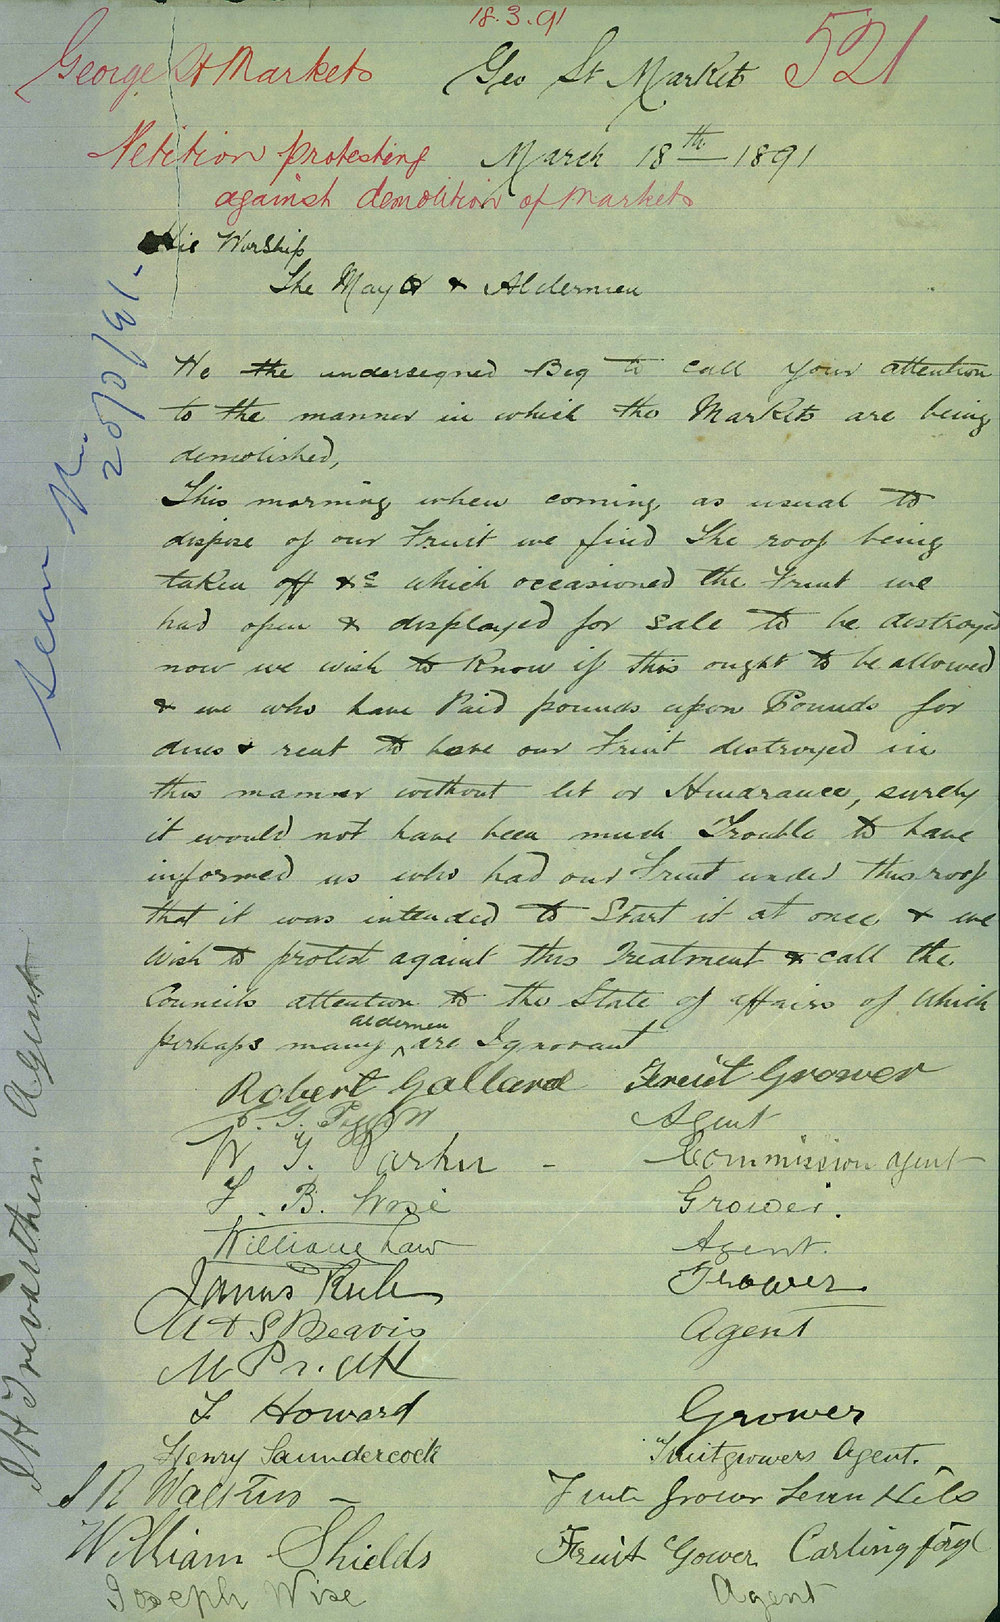 18.3.91
George St Markets
Geo St Markets
521
Petition protesting
March 18th 1891
against demolition of Markets
His Worship
The Mayor & Aldermen
We the undersigned Beg to call your attention
to the manner in which the Markets are being
demolished,
This morning when coming as usual to
dispose of our Fruit we find The roof being
taken off &c which occasioned the Fruit we
had open & displayed for sale to be destroyed
now we wish to Know if this ought to be allowed
& we who have Paid pounds upon Pounds for
dues & rent to have our Fruit destroyed in
this manner without let or Hinarance, surely
it would not have been much Trouble to have
informed us who had our Fruit under this roof
that it was intended to Start it at once, & we
Wish to protest against this Treatment & call the
Councils attention to the State of affairs of Which
perhaps many aldermen are Ignorant
Robert Gallard Fruit Grower
Agent
W. G. Parker - Commission agent
F. B. Wose Grower.
William Law Agent.
James Rule Grower
A & S Beavis Agent
M
F Howard Grower
Henry Saundercock Fruitgrowers Agent.
S R Watkins - Fruit Grower Seven Hills
William Shields Fruit Gower Carlingford
Joseph Wise Agent
Seen
20/3/91-
J H Trevarthen. Agent